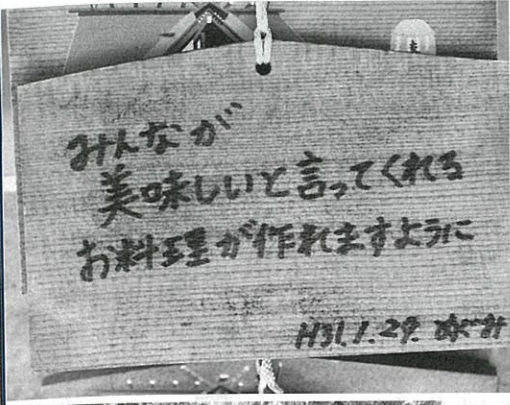 みんなが
美味しいと言ってくれる
お料理が作れますように
H31.1.29. めぐみ